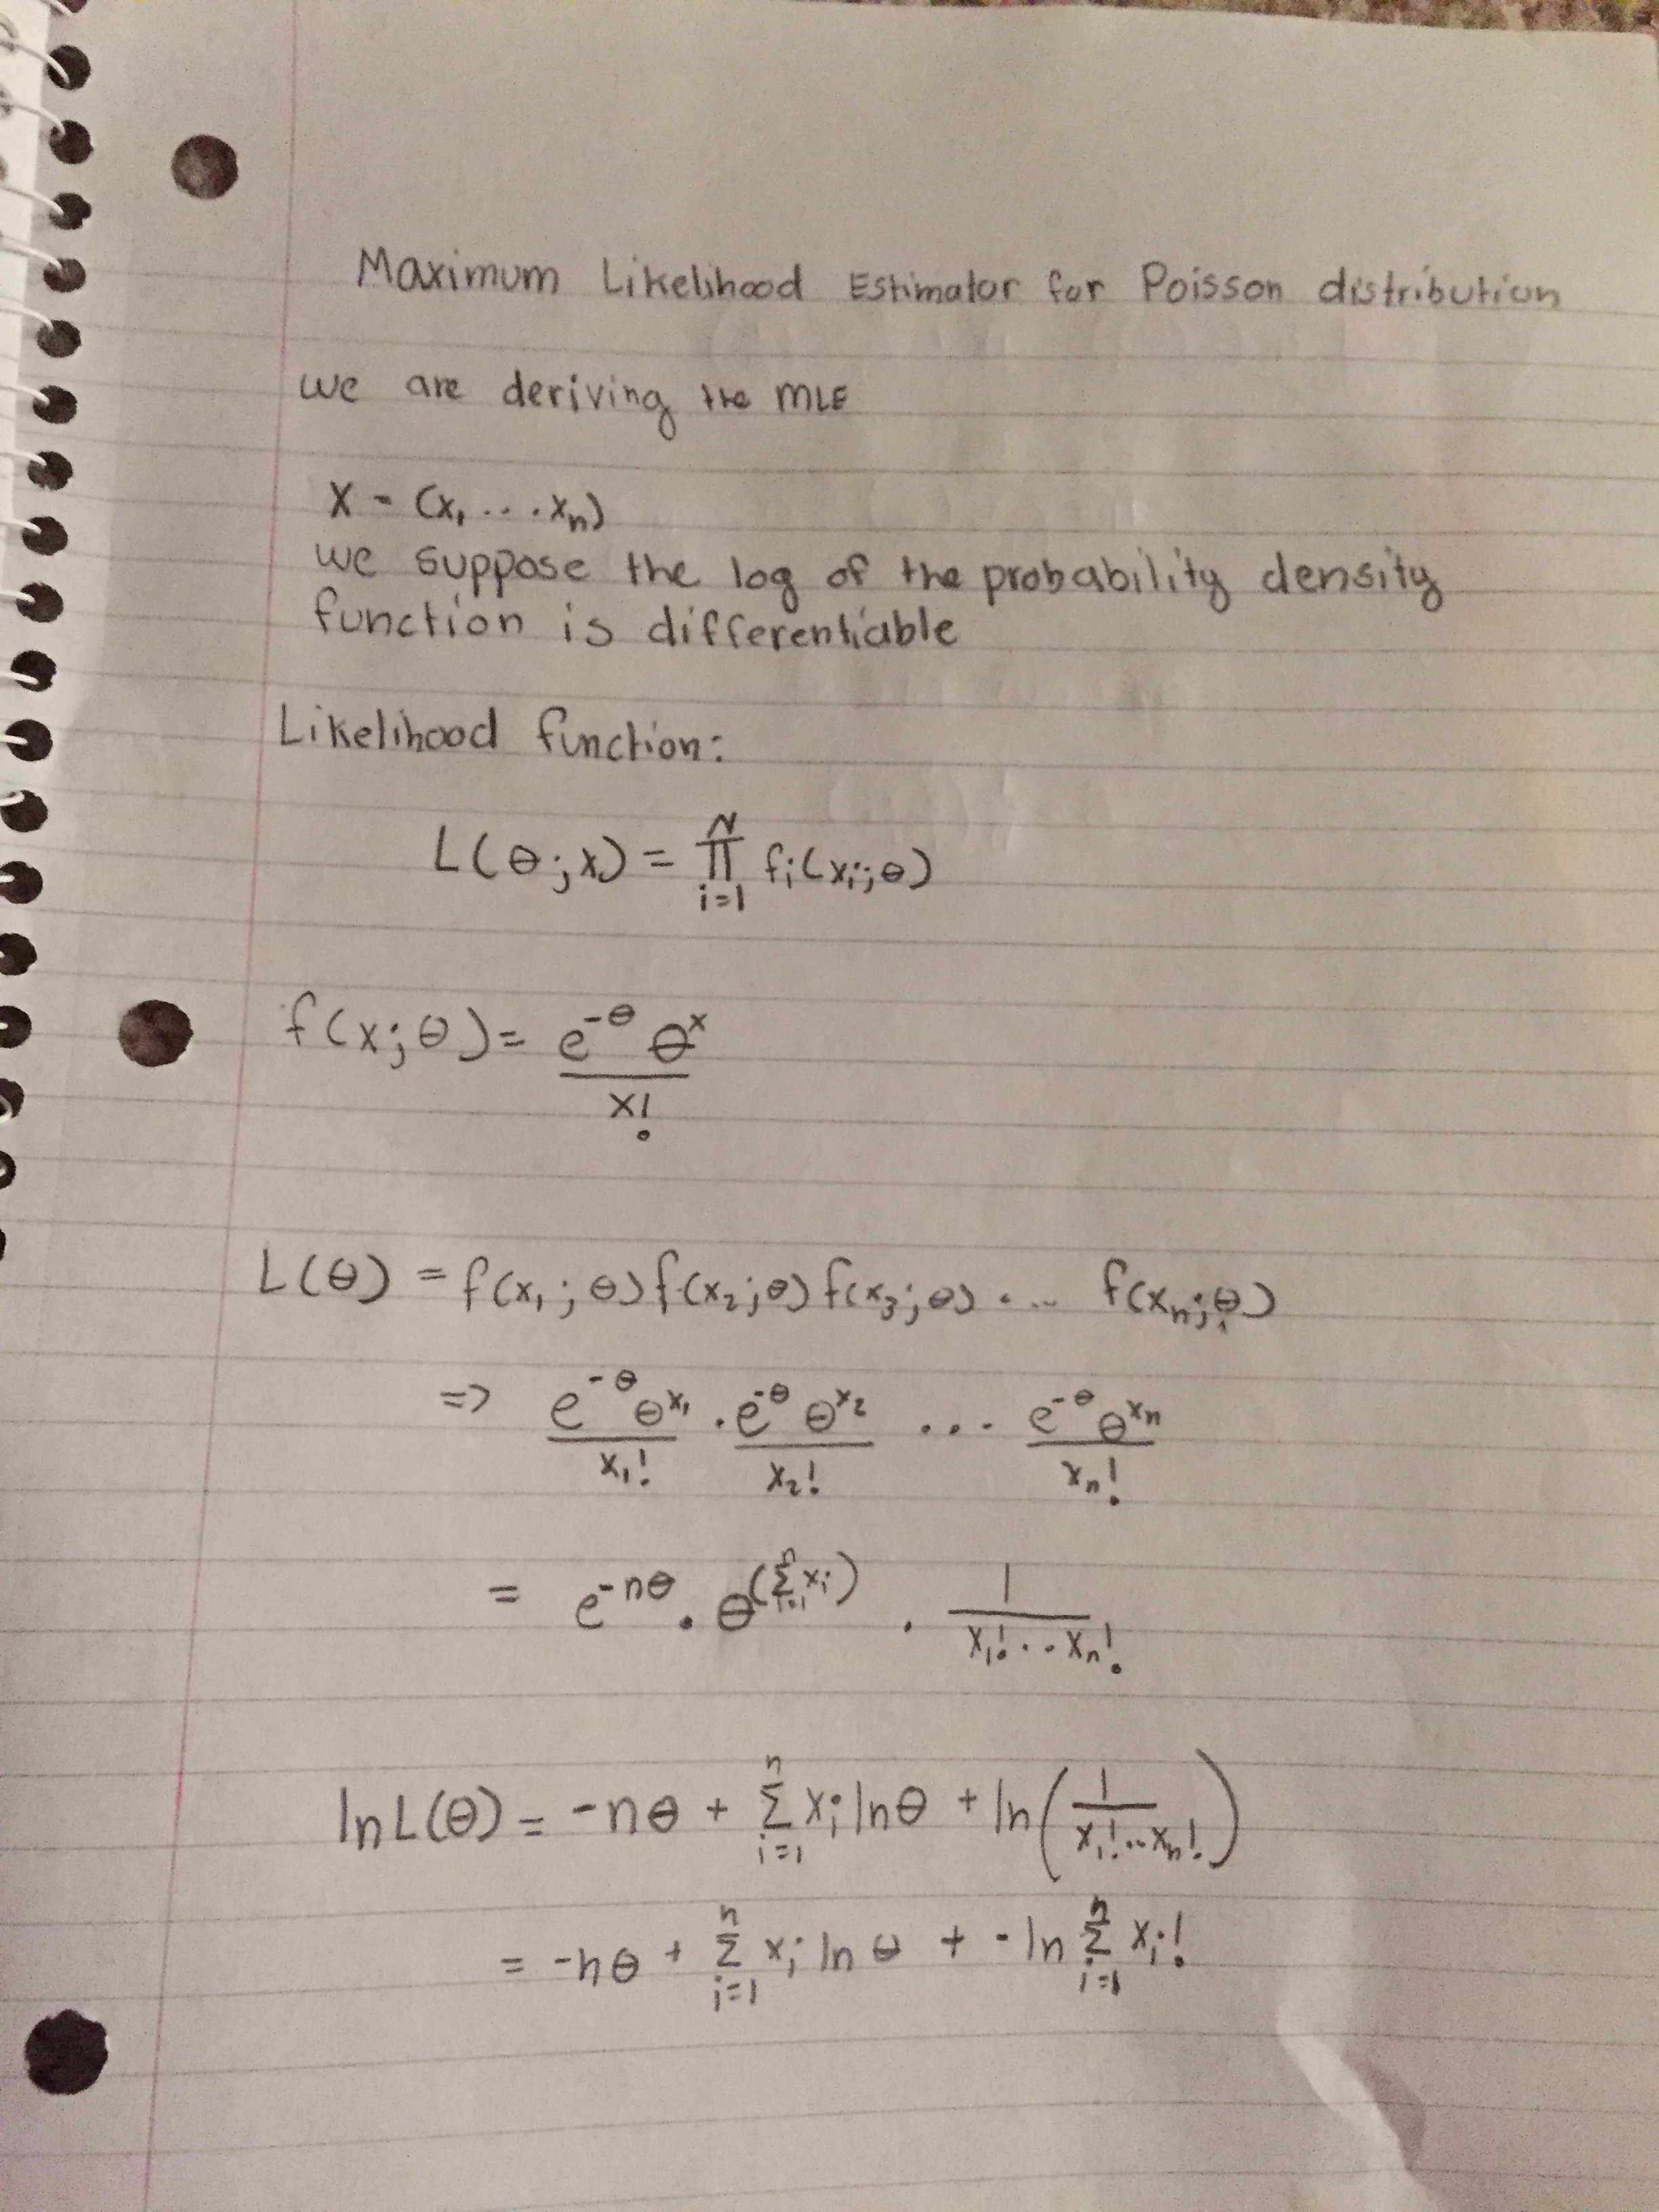 Maximum Likelihood Estimator for Poisson distribution
we are deriving the MLE
X - (x₁ ... xₙ)
we suppose the log of the probability density
function is differentiable
Likelihood function:
L(θ;x) = ∏_{i=1}^{N} fᵢ(xᵢ;θ)
f(x;θ) = \frac{e^{-θ} θ^{x}}{x!}
L(θ) = f(x₁;θ) f(x₂;θ) f(x₃;θ) ... f(xₙ;θ)
=> \frac{e^{-θ} θ^{x₁}}{x₁!} · \frac{e^{-θ} θ^{x₂}}{x₂!} ... \frac{e^{-θ} θ^{xₙ}}{xₙ!}
= e^{-nθ} · θ^{(∑_{i=1}^{n} xᵢ)} · \frac{1}{x₁! .. xₙ!}
ln L(θ) = -nθ + ∑_{i=1}^{n} xᵢ ln θ + ln(\frac{1}{x₁! .. xₙ!})
= -nθ + ∑_{i=1}^{n} xᵢ ln θ + - ln ∑_{i=1}^{n} xᵢ!